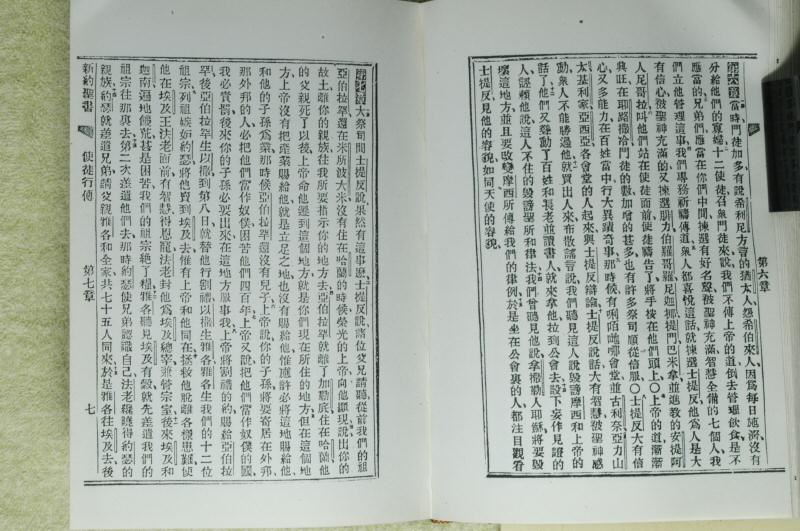 第六章
第六章 當時門徒加多有說希利尼方言的猶太人怨希伯來人因爲每日施濟沒有
分給他們的寡婦十二使徒召衆門徒來說我們不傳上帝的道倒去管理飲食是不
應當的兄弟們應當在你們中間揀選有好名聲被聖神充滿智慧全備的七個人我
們立他管理這事我們專務祈禱傳道衆人都喜悅這話就揀選士提反他爲人是大
有信心被聖神充滿的又揀選腓力伯羅哥羅尼迦挪提門巴米拿並進教的安提阿
人尼哥拉叫他們站在使徒面前使徒禱告了將手按在他們頭上〇上帝的道漸漸
興旺在耶路撒冷門徒的數加增的甚多也有許多祭司順從信服〇士提反大有信
心又多能力在百姓當中行大異蹟奇事那時候有唎咟哋嗱會堂並古利奈亞力山
太基利家亞西亞各會堂的人起來與士提反辯論士提反說話大有智慧被聖神感
動衆人不能勝過他就買出人來布散謠言說我們聽見這人說毀謗摩西和上帝的
話了他們又聳動了百姓和長老並讀書人就來拿他拉到公會去設下妄作見證的
人誣賴他說這人不住的毀謗聖所和律法我們曾聽見他說拿撒勒人耶穌將要毀
壞這地方並且要改變摩西所傳給我們的律例於是坐在公會裏的人都注目觀看
士提反見他的容貌如同天使的容貌
第七章 大祭司問士提反說果然有這事麽士提反說諸位父兄請聽從前我們的祖
亞伯拉罕還在米所波大米沒有住在哈蘭的時候榮光的上帝向他顯現說出你的
故土離你的親族往我所要指示你的地方去亞伯拉罕就離了加勒底住在哈蘭他
的父親死了以後上帝命他遷到這個地方就是你們現在所住的地方但在這個地
方上帝沒有把產業賜給他就是立足之地也沒有賜給他惟應許必將這地賜給他
和他的子孫爲業那時候亞伯拉罕還沒有兒子上帝說你的子孫將要寄居在外邦
那外邦的人必把他們當作奴僕困苦他們四百年上帝又說把他們當作奴僕的國
我必責罰後來你的子孫必要出來在這地方服事我上帝將割禮的約賜給亞伯拉
罕後亞伯拉罕生以撒到第八日就替他行割禮以撒生雅各雅各生我們的十二位
祖宗列祖嫉妒約瑟將他賣到埃及去惟有上帝和他同在拯救他脫離各樣患難使
他在埃及王法老面前有智慧得恩寵法老封他爲埃及總宰兼管宗室後來埃及和
迦南遍地饑荒甚是困苦我們的祖宗絕了糧雅各聽見埃及有穀就先差遣我們的
祖宗往那裏去第二次差遣他們去那時約瑟使兄弟認識自己法老纔曉得約瑟的
親族約瑟就差遣兄弟請父親雅各和全家共七十五人同來於是雅各往埃及去後
新約聖書 使徒行傳 第七章 七